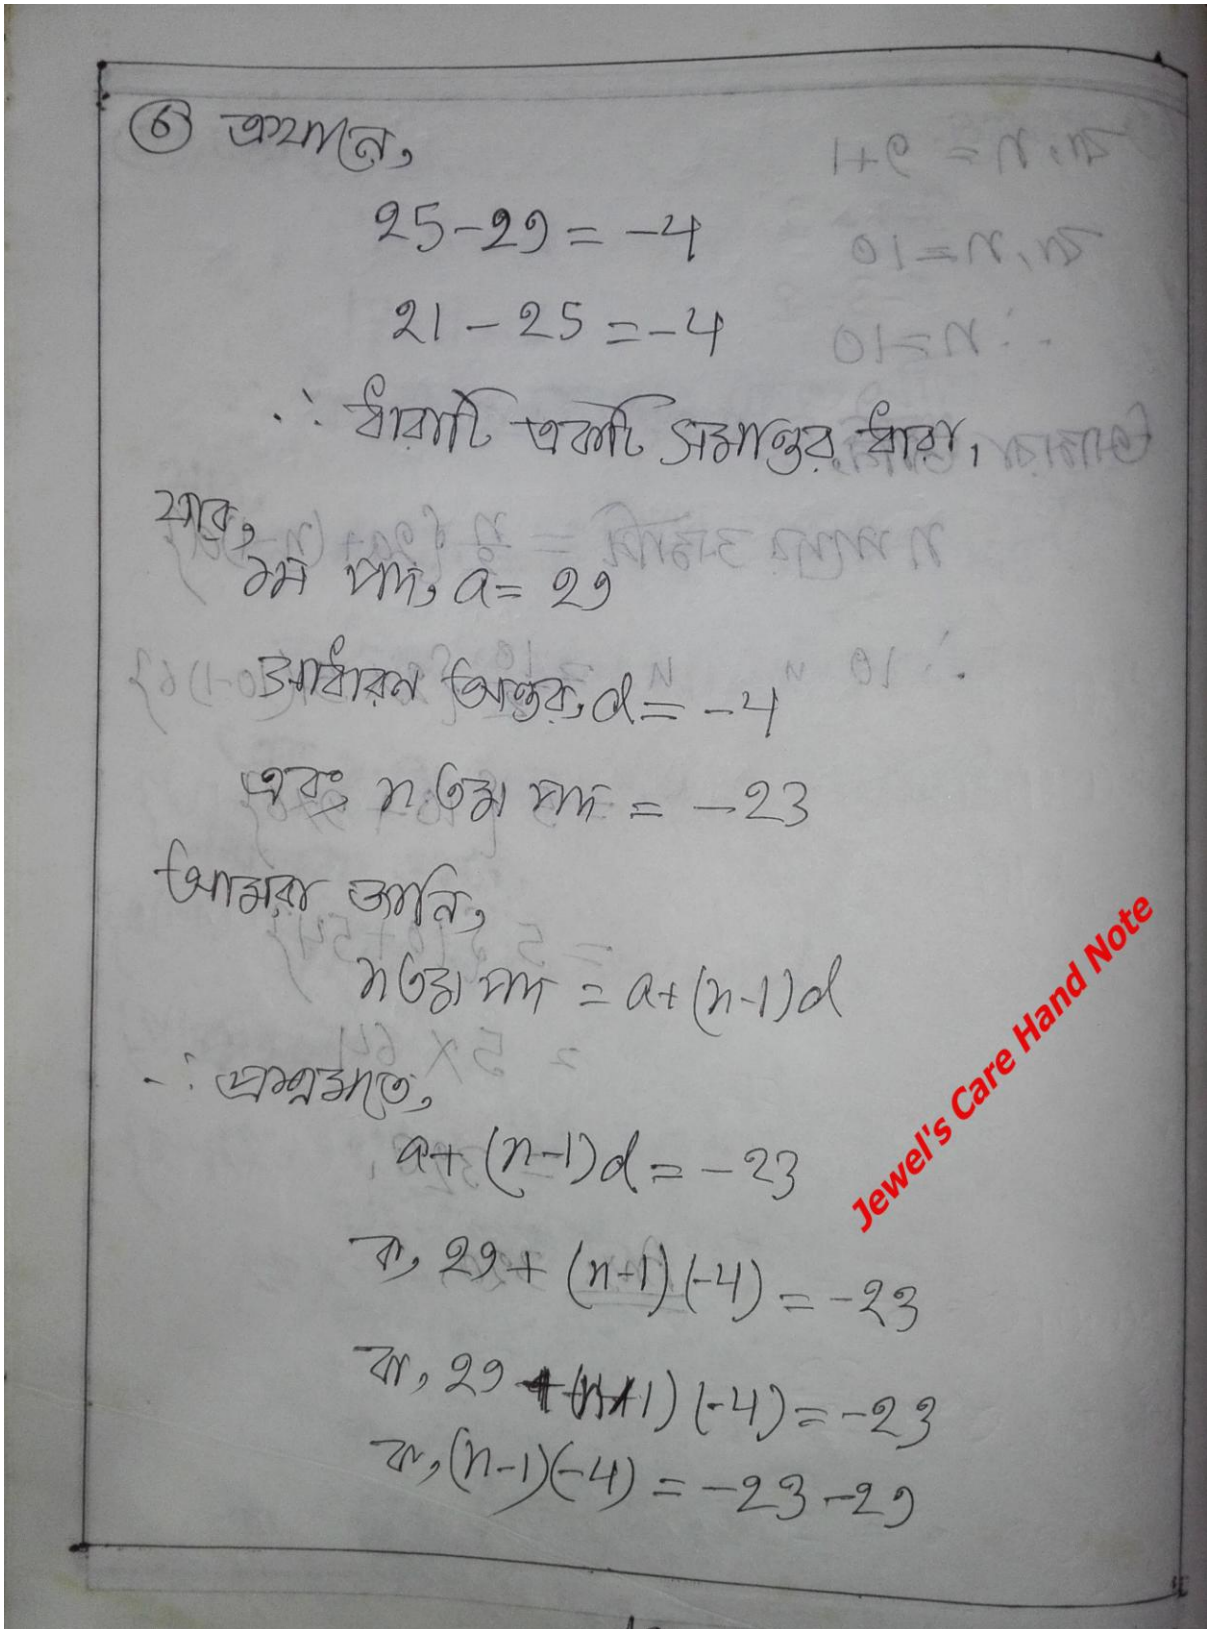 ৬ এখানে,
25-29 = -4
21 - 25 = -4
∴ ধারাটি একটি সমান্তর ধারা,
যার,
১ম পদ, a = 29
সাধারন অন্তর, d = -4
এবং n তম পদ = -23
আমরা জানি,
n তম পদ = a+(n-1)d
∴ প্রশ্নমতে,
a+(n-1)d = -23
বা, 29+ (n-1) (-4) = -23
বা, 29 + (n-1) (-4) = -23
বা, (n-1)(-4) = -23-29
Jewel's Care Hand Note